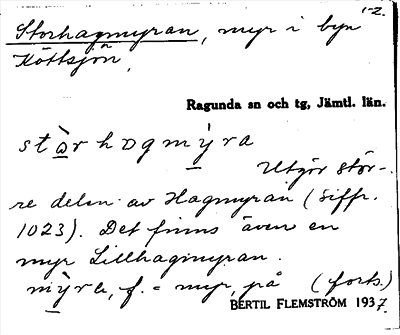 1-2.
Storhagmyran, myr i byn
Köttsjön.
Ragunda sn och tg, Jämtl. län.
stɷ̀rhɒgmỳra
Utgör stör-
re delen av Hagmyran (siffr.
1023). Det finns även en
myr Lillhagmyran.
mỳra, f. = myr, på (forts.)
BERTIL FLEMSTRÖM 1937.